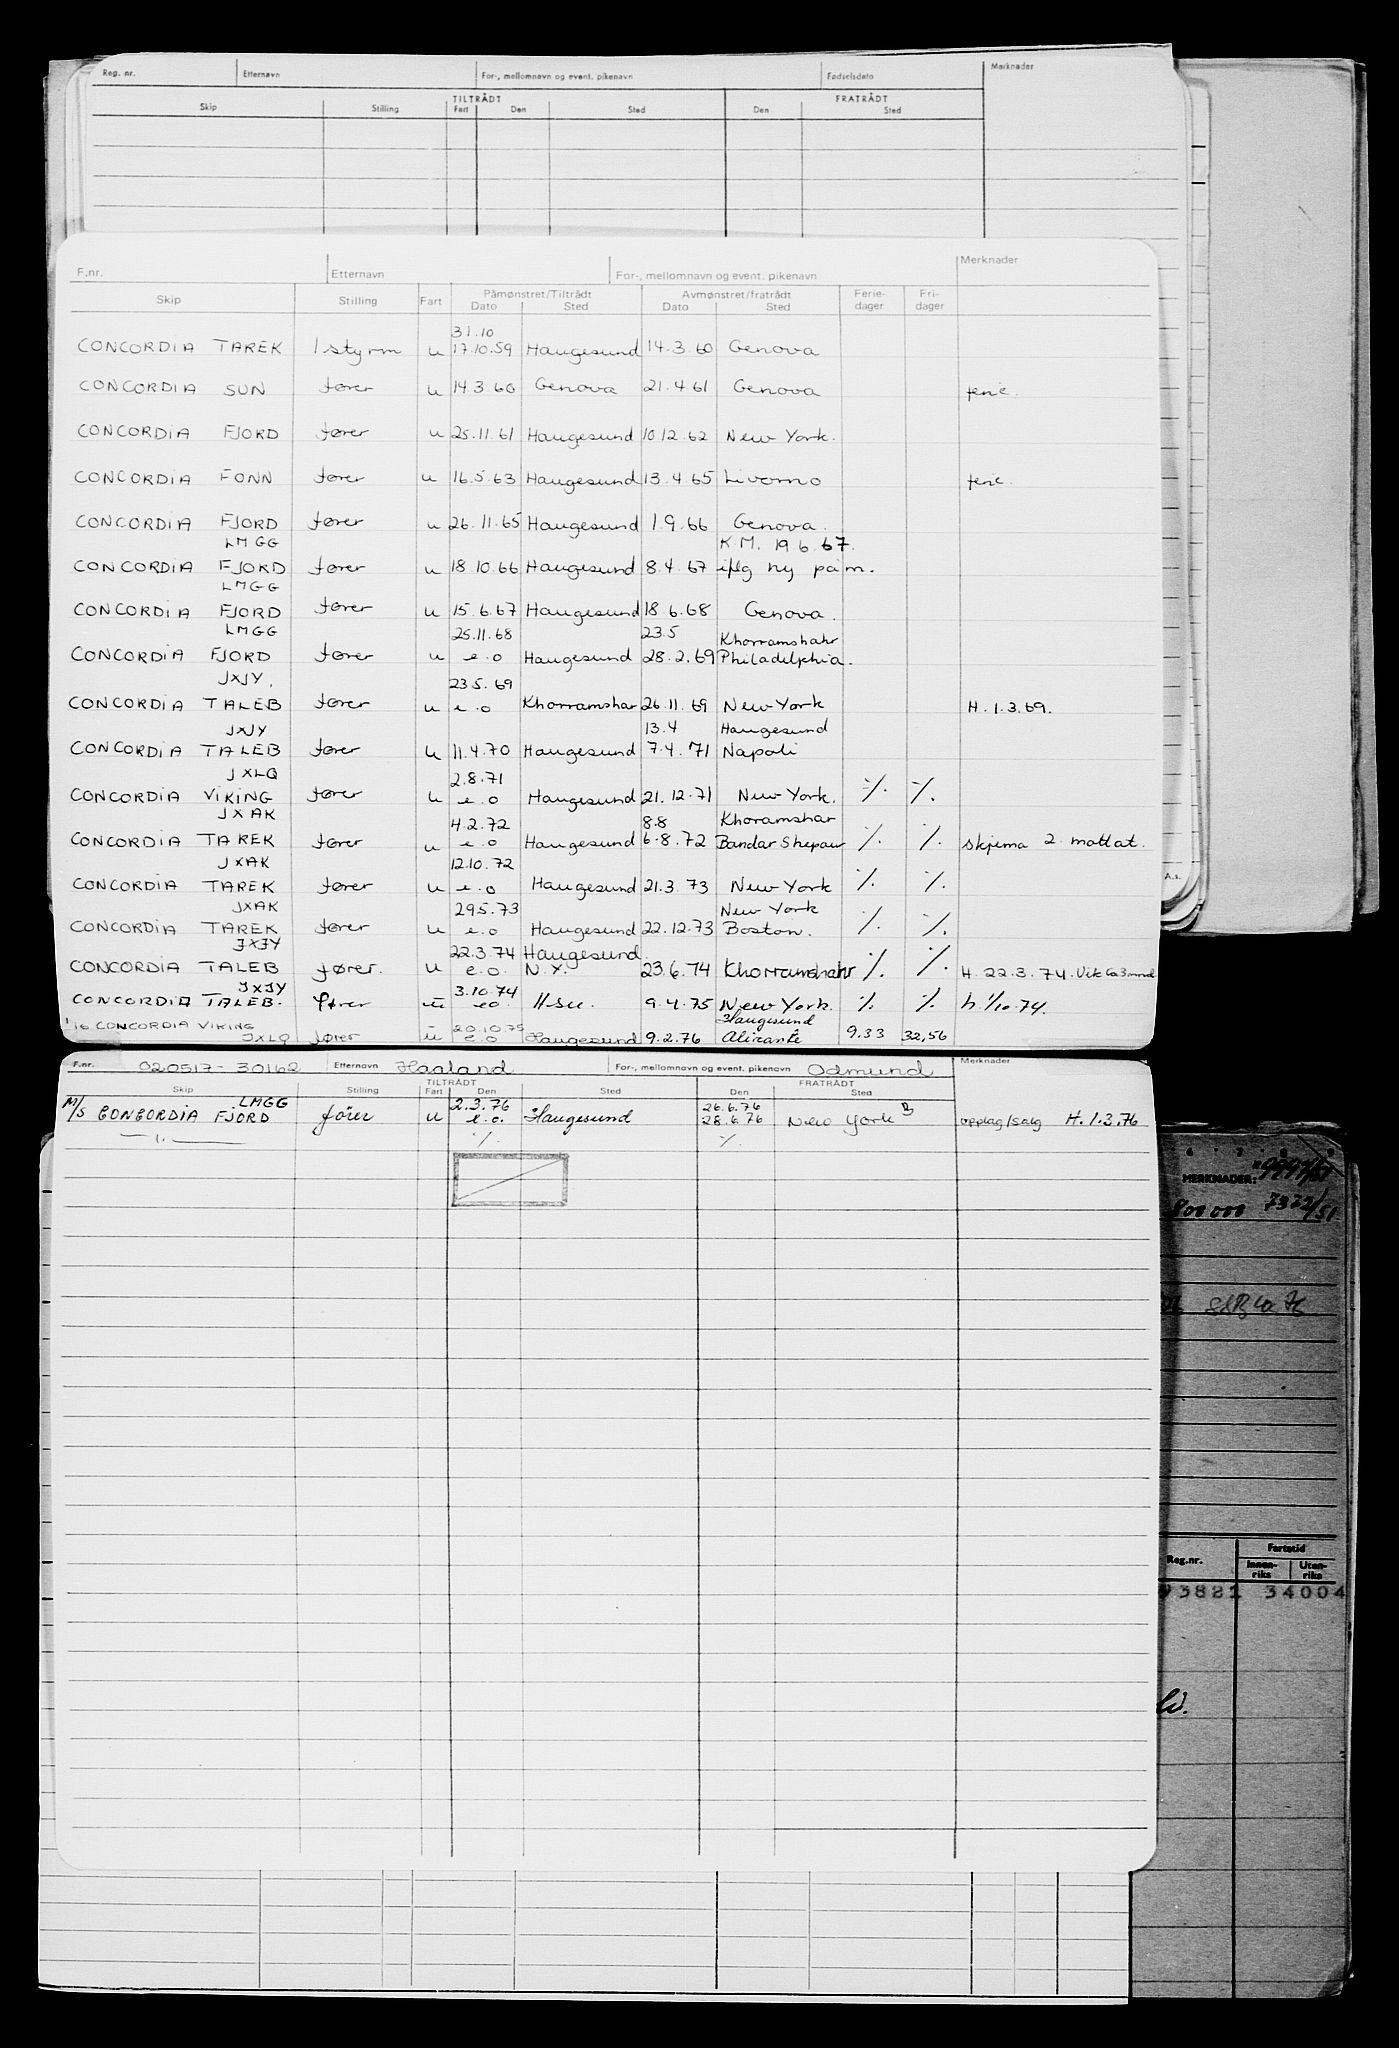 Reg. nr. Etternavn For-, mellomnavn og event. pikenavn Fødselsdato Merknader
TILTRÅDT FRATRÅDT
Skip Stilling Fart Den Sted Den Sted
F.nr. Etternavn For-, mellomnavn og event. pikenavn Merknader
Påmønstret/Tiltrådt Avmønstret/fratrådt Ferie- Fri-
Skip Stilling Fart Dato Sted Dato Sted dager dager
31.10
CONCORDIA TAREK 1 styrm u 17.10.59 Haugesund 14.3.60 Genova
CONCORDIA SUN fører u 14.3.60 Genova 21.4.61 Genova ferie.
CONCORDIA FJORD fører u 25.11.61 Haugesund 10.12.62 New York.
CONCORDIA FONN fører u 16.5.63 Haugesund 13.4.65 Livorno ferie.
CONCORDIA FJORD fører u 26.11.65 Haugesund 1.9.66 Genova.
LMGG K.M. 19.6.67.
CONCORDIA FJORD fører u 18.10.66 Haugesund 8.4.67 iflg ny påm.
LMGG
CONCORDIA FJORD fører u 15.6.67 Haugesund 18.6.68 Genova.
LMGG 25.11.68 23.5 Khorramshahr
CONCORDIA FJORD fører u e.o Haugesund 28.2.69 Philadelphia.
JXJY. 23.5.69
CONCORDIA TALEB fører u e.o Khorramshar 26.11.69 New York H.1.3.69.
JXJY 13.4 Haugesund
CONCORDIA TALEB fører u 11.4.70 Haugesund 7.4.71 Napoli
JXLQ 2.8.71
CONCORDIA VIKING fører u e.o Haugesund 21.12.71 New York. ·/. ·/.
JXAK 4.2.72 8.8 Khoramshar
CONCORDIA TAREK fører u e.o Haugesund 6.8.72 Bandar Shepaur ·/. ·/. skjema 2 mottat.
JXAK 12.10.72
CONCORDIA TAREK fører u e.o Haugesund 21.3.73 New York ·/. ·/.
JXAK 29.5.73 New York
CONCORDIA TAREK fører u e.o Haugesund 22.12.73 Boston. ·/. ·/.
JXJY 22.3.74 Haugesund.
CONCORDIA TALEB fører. u e.o. N.Y. 23.6.74 Khorramshahr ·/. ·/. H.22.3.74.
JXJY 3.10.74
CONCORDIA TALEB. fører u eo. Hsu. 9.4.75 New York. ·/. ·/. h.1/10.74.
CONCORDIA VIKING 20.10.75 Haugesund
JXLQ fører u e.o Haugesund 9.2.76 Alicante 9.33 32,56
F.nr. 020517-30162 Etternavn Haaland For-, mellomnavn og event. pikenavn Odmund Merknader
TILTRÅDT FRATRÅDT
Skip Stilling Fart Den Sted Den Sted
LMGG 2.3.76 26.6.76 B
M/S CONCORDIA FJORD fører u e.o. Haugesund 28.6.76 New York opplag/salg H.1.3.76
—"— ·/. ·/.
A.s.
6 7 8 9
MERKNADER:
800 000 7372/51
Reg.nr. Fartstid
Innen- Uten-
riks riks
93821 34004